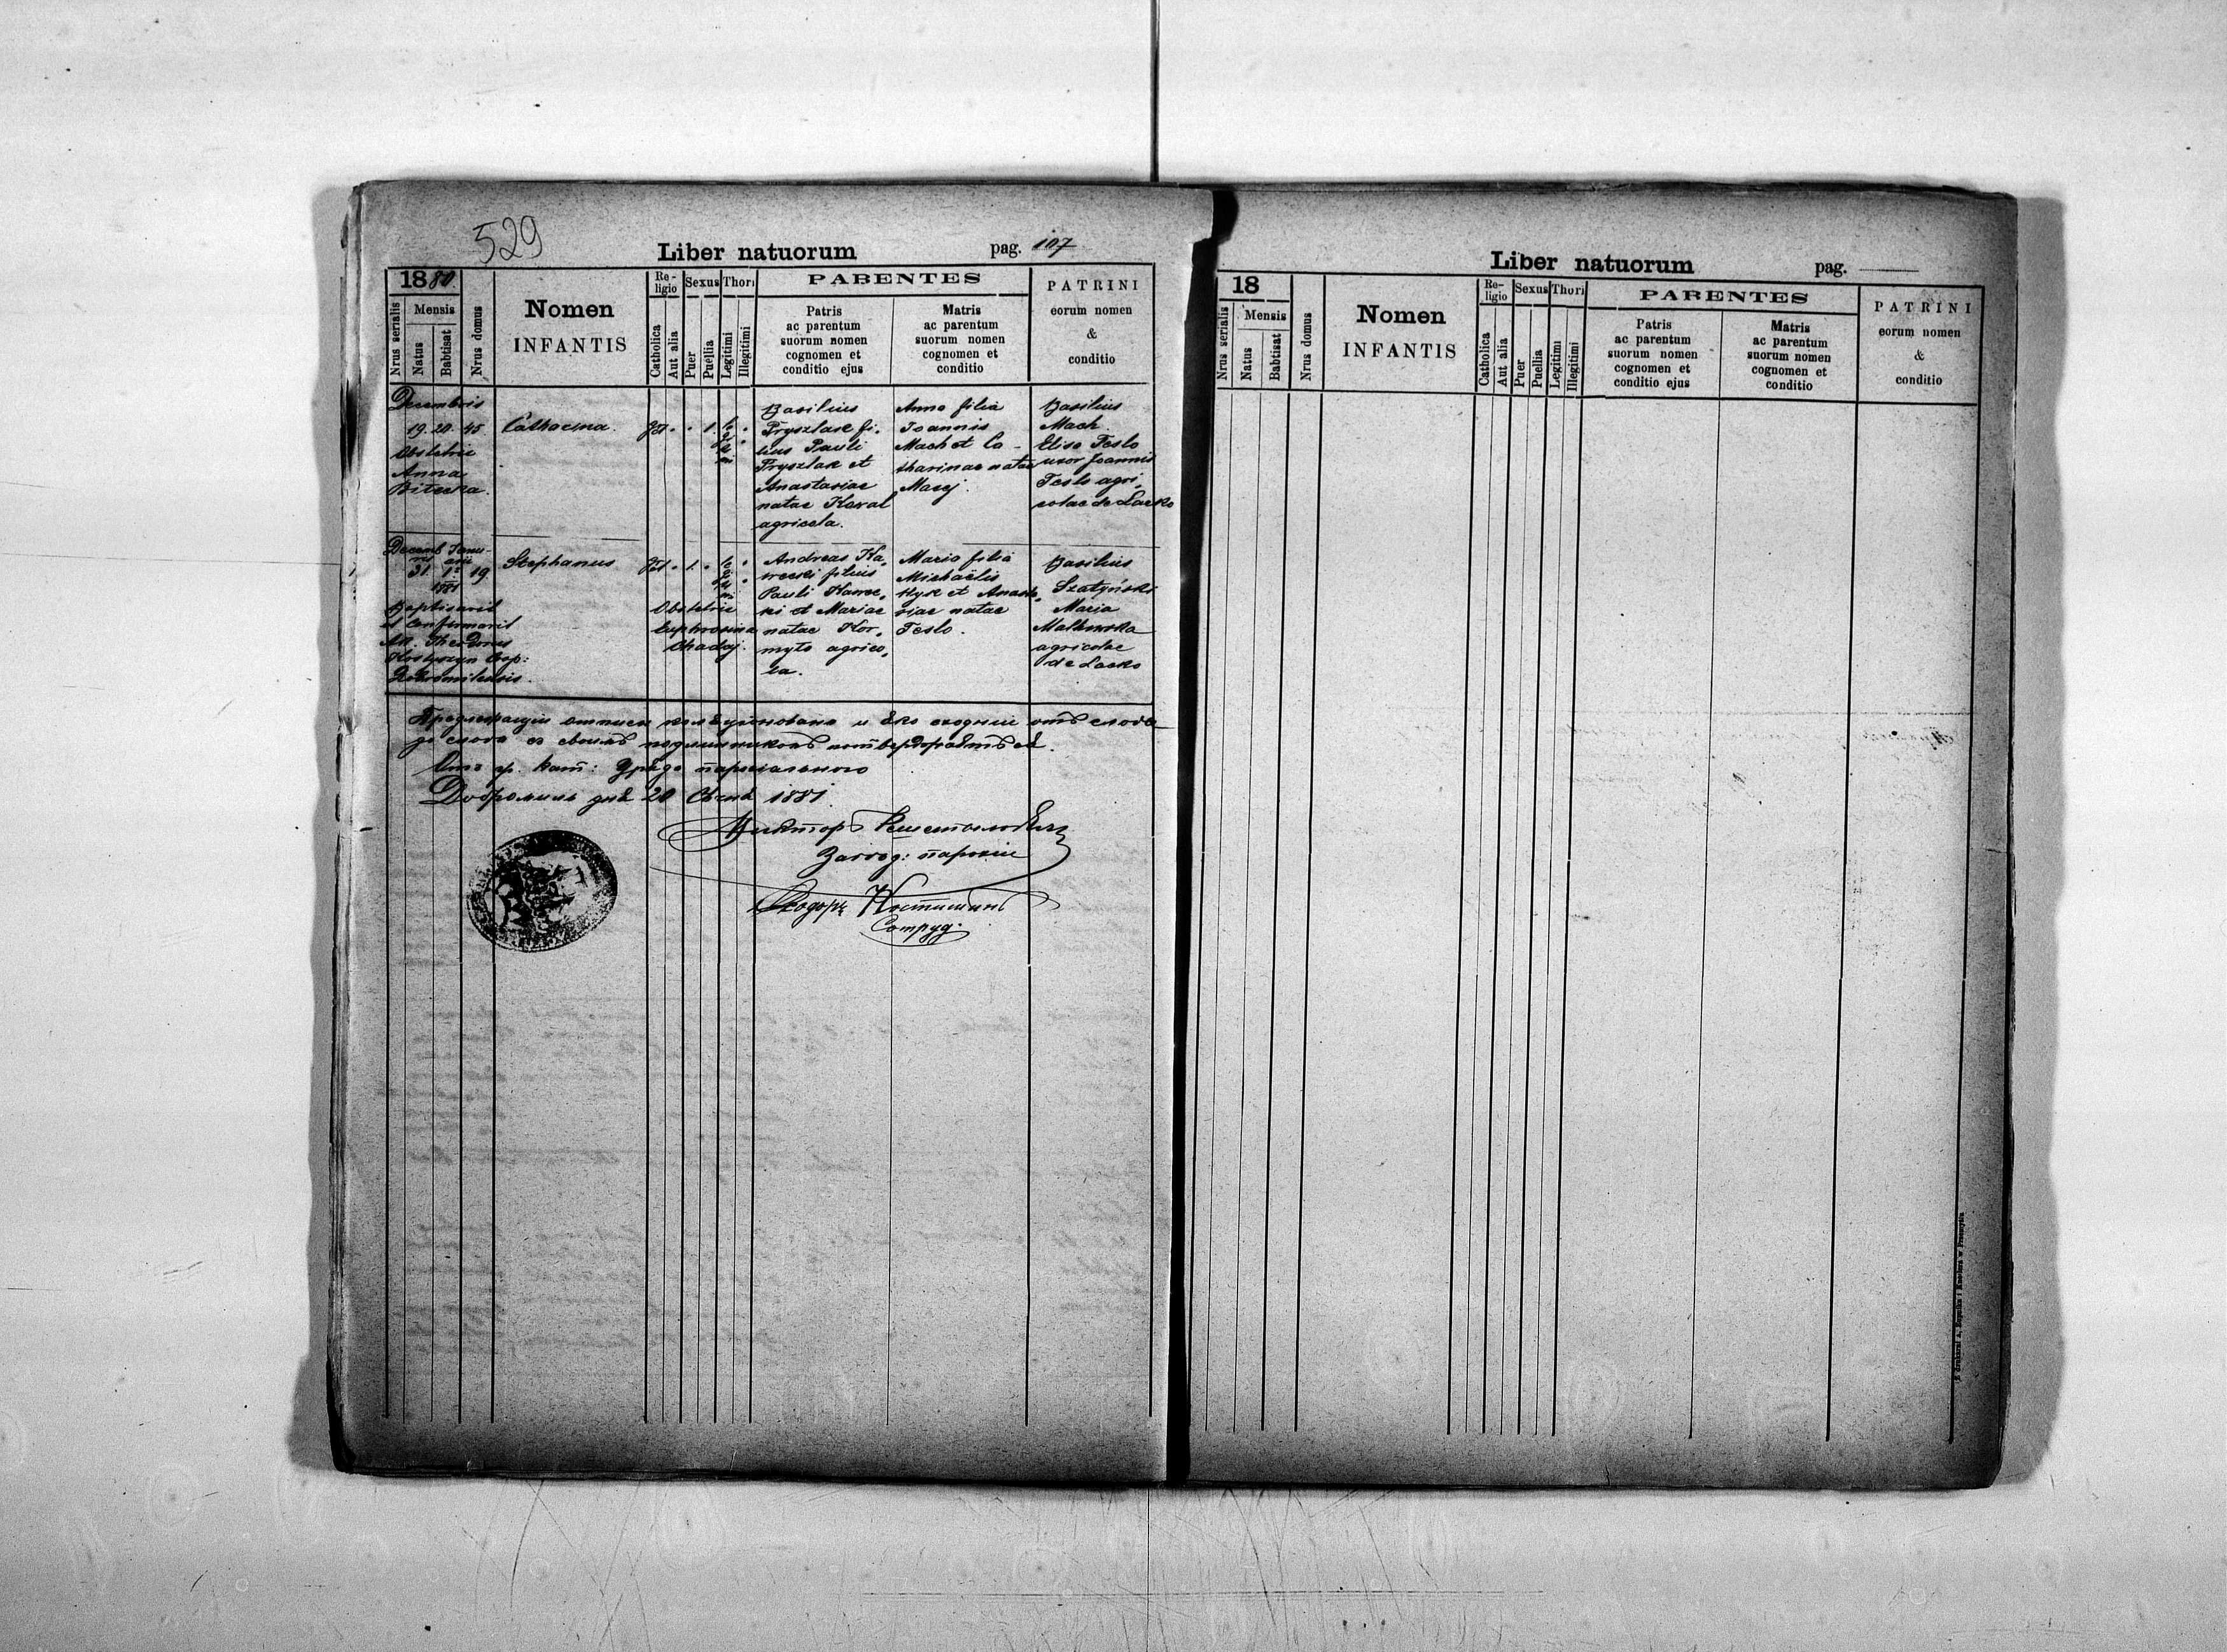 529
Liber natuorum pag. 107
1880
Nrus serialis
Mensis
Natus
Babtisat
Nrus domus
Nomen
INFANTIS
Re-
ligio
Catholica
Aut alia
Sexus
Puer
Puella
Thori
Legitimi
Illegitimi
PARENTES
Patris
ac parentum
suorum nomen
cognomen et
conditio ejus
Matris
ac parentum
suorum nomen
cognomen et
conditio
PATRINI
eorum nomen
&
conditio
Decembris
19. 20. 45
Obstetrix
Anna
Catharina.
1.
Basilius
Pryszlak fi-
lius Pauli
Pryszlak et
Anastasiae
natae Kowal
agricola.
Anna filia
Joannis
Mach et Ca-
tharinae natae
Macej.
Basilius
Mach.
Elisa Teslo
uxor Joannis
Teslo agri-
colae de Lacko
Decemb Janu-
arii
31. 1. 19
1881
Baptisavit
et Confirmavit
Theodorus
Kostyszyn Coop:
Dobromilensis.
Stephanus
1.
Obstetrix
Euphrosina
Chadaj.
Andreas Ka-
wecki filius
Pauli Kawec-
ki et Mariae
natae Kor-
myto agrico-
la.
Maria filia
Michaëlis
Hyk et Anasta-
siae natae
Teslo.
Basilius
Szatyński
Maria
Malkowska
agricolae
de Lacko
от слова
до слова съ своимъ подлинникомъ
Отъ гр. кат: Уряда парохіального
Добромиль дня 20 Сѣчня 1881.
Викторъ
Завѣд: парохіи
Ѳеодоръ Костишинъ
Сотруд.
Liber natuorum pag.
18
Nrus serialis
Mensis
Natus
Babtisat
Nrus domus
Nomen
INFANTIS
Re-
ligio
Catholica
Aut alia
Sexus
Puer
Puella
Thori
Legitimi
Illegitimi
PARENTES
Patris
ac parentum
suorum nomen
cognomen et
conditio ejus
Matris
ac parentum
suorum nomen
cognomen et
conditio
PATRINI
eorum nomen
&
conditio